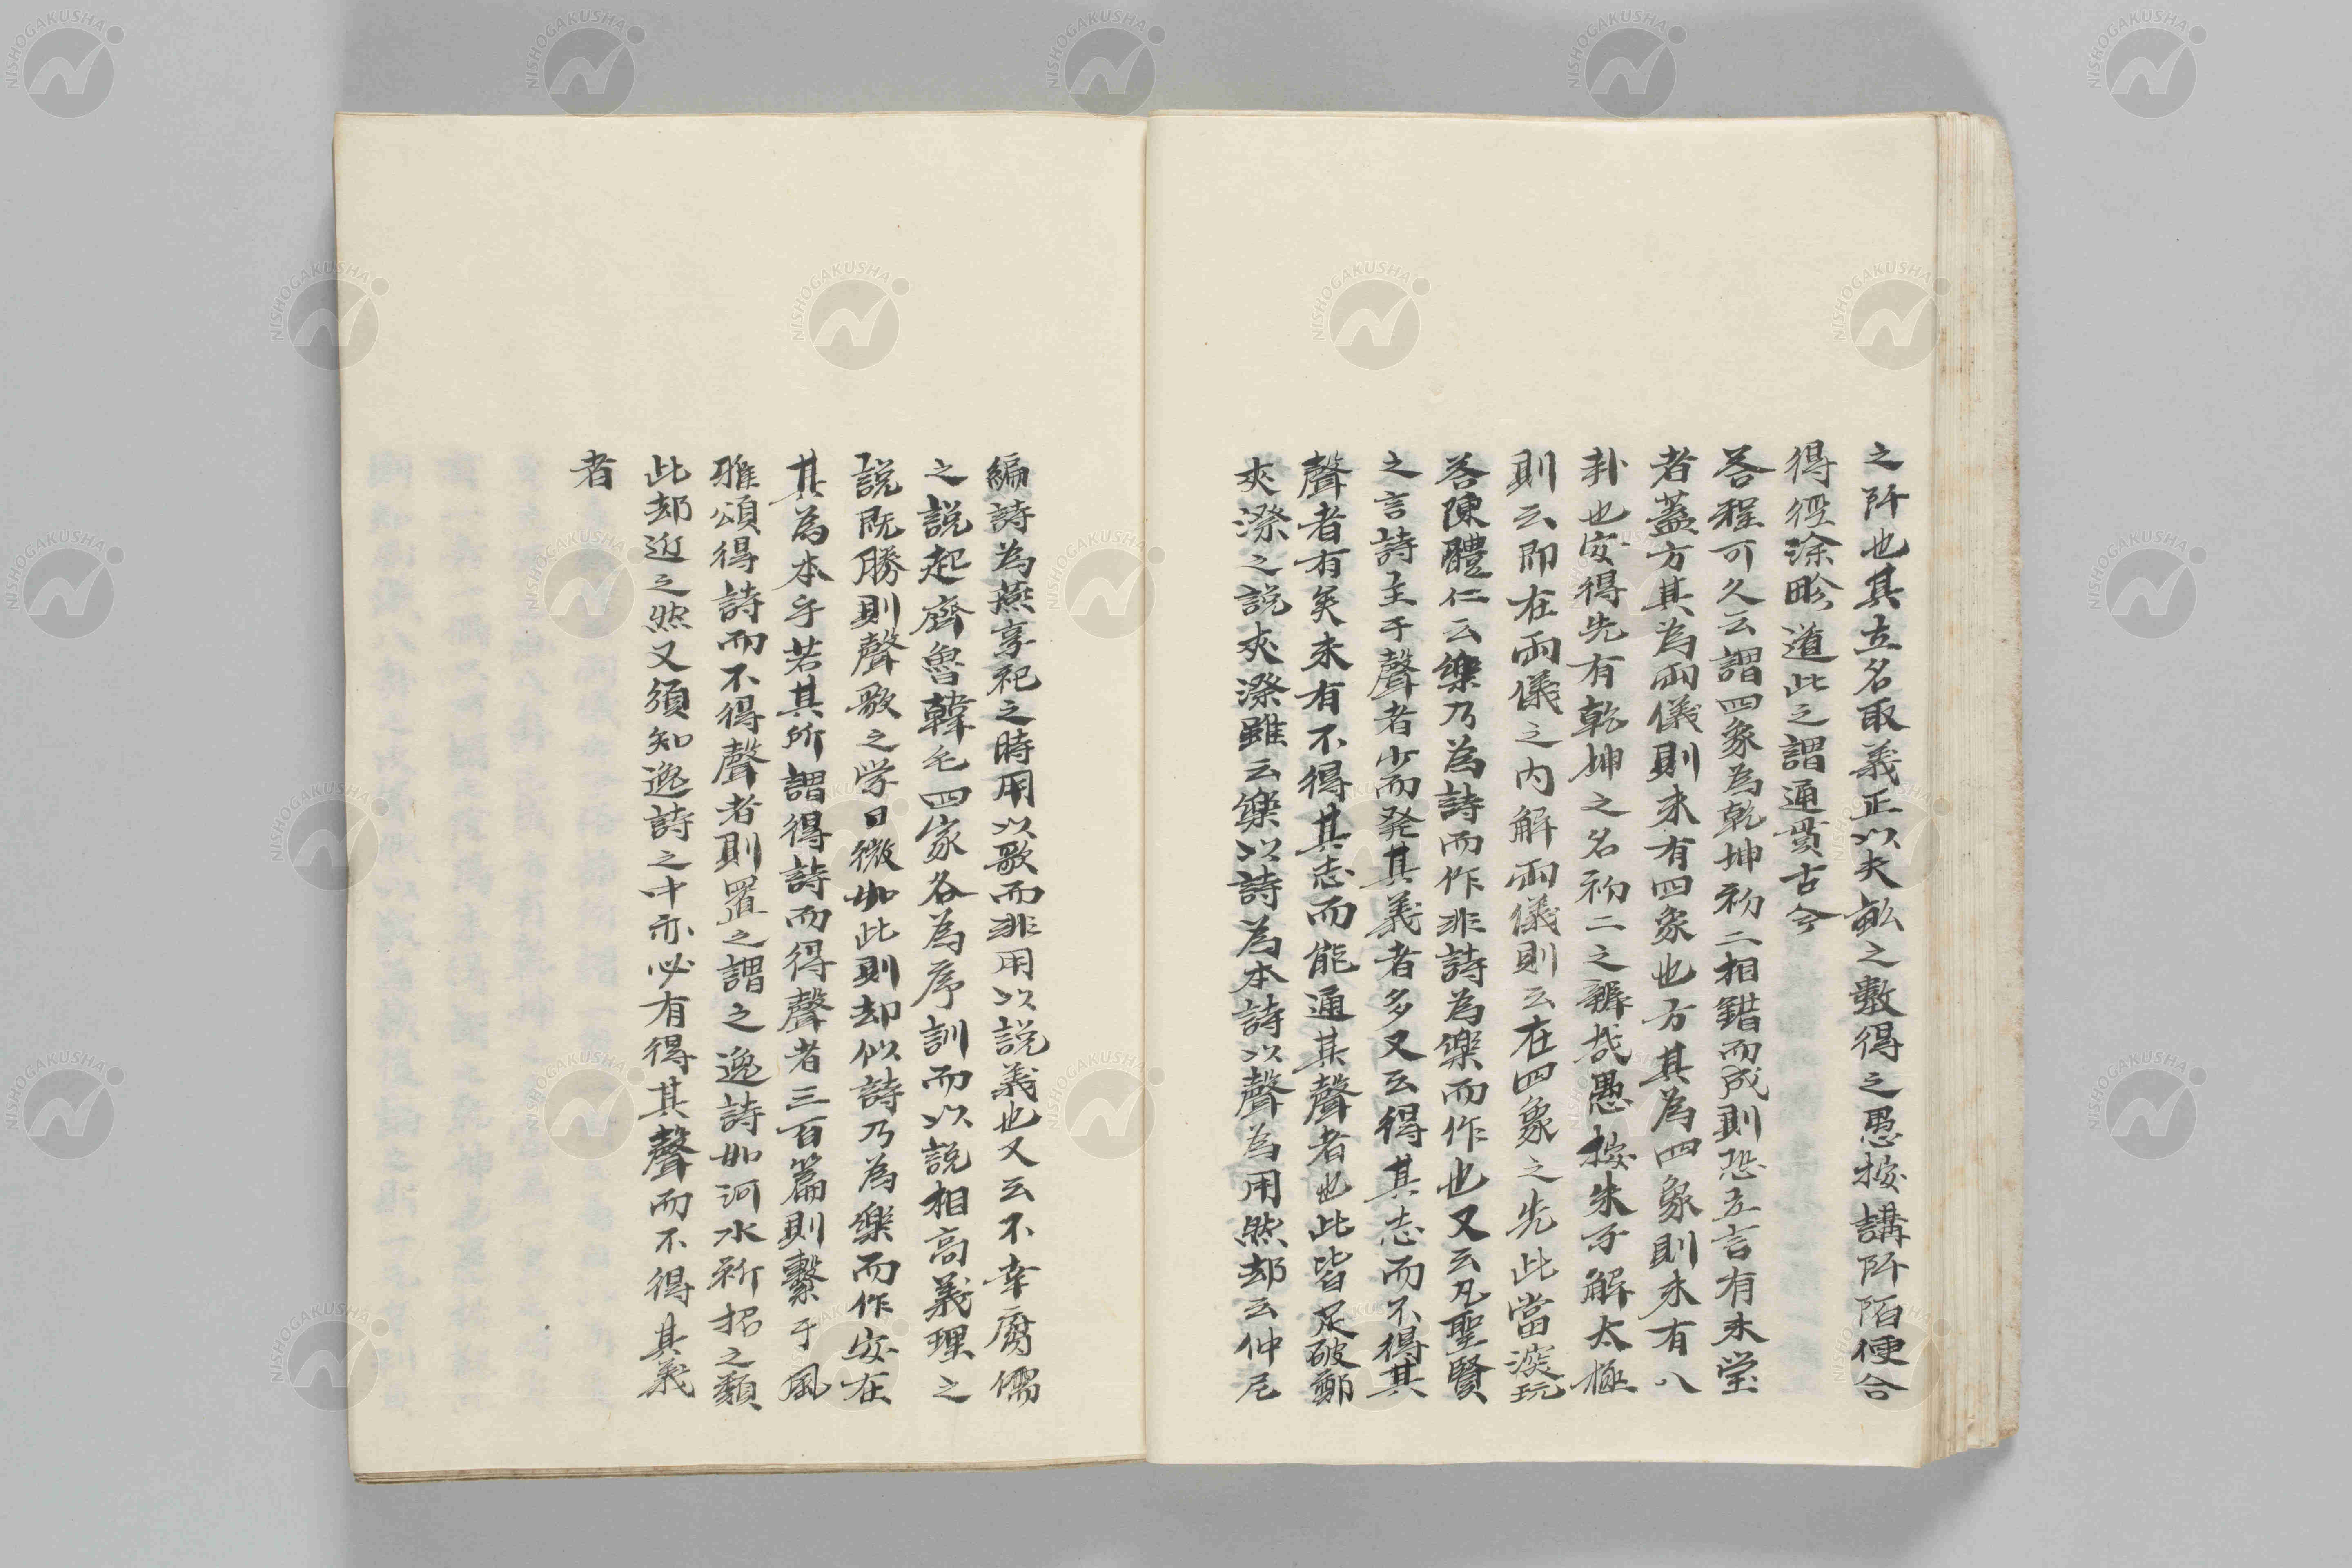 之阡也其立名取義正以夫畝之數得之愚按講阡陌便合
得徑涂畛道此之謂通貫古今
答程可久云謂四象為乾坤初二相錯而成則恐立言有未瑩
者蓋方其為兩儀則未有四象也方其為四象則未有八
卦也安得先有乾坤之名初二之辨哉愚按朱子解太極
則云即在兩儀之内解兩儀則云在四象之先此當深玩
答陳體仁云樂乃為詩而作非詩為樂而作也又云凡聖賢
之言詩主于聲者少而発其義者多又云得其志而不得其
聲者有矣未有不得其志而能通其聲者也此皆足破鄭
夾漈之説夾漈雖云樂以詩為本詩以聲為用然却云仲尼
編詩為燕享祀之時用以歌而非用以説義也又云不幸腐儒
之説起齊魯韓毛四家各為序訓而以説相高義理之
説既勝則聲歌之学日微如此則却似詩乃為樂而作安在
其為本乎若其所謂得詩而得聲者三百篇則繫于風
雅頌得詩而不得聲者則置之謂之逸詩如河水祈招之類
此却近之然又須知逸詩之中亦必有得其聲而不得其義
者
NISHOGAKUSHA